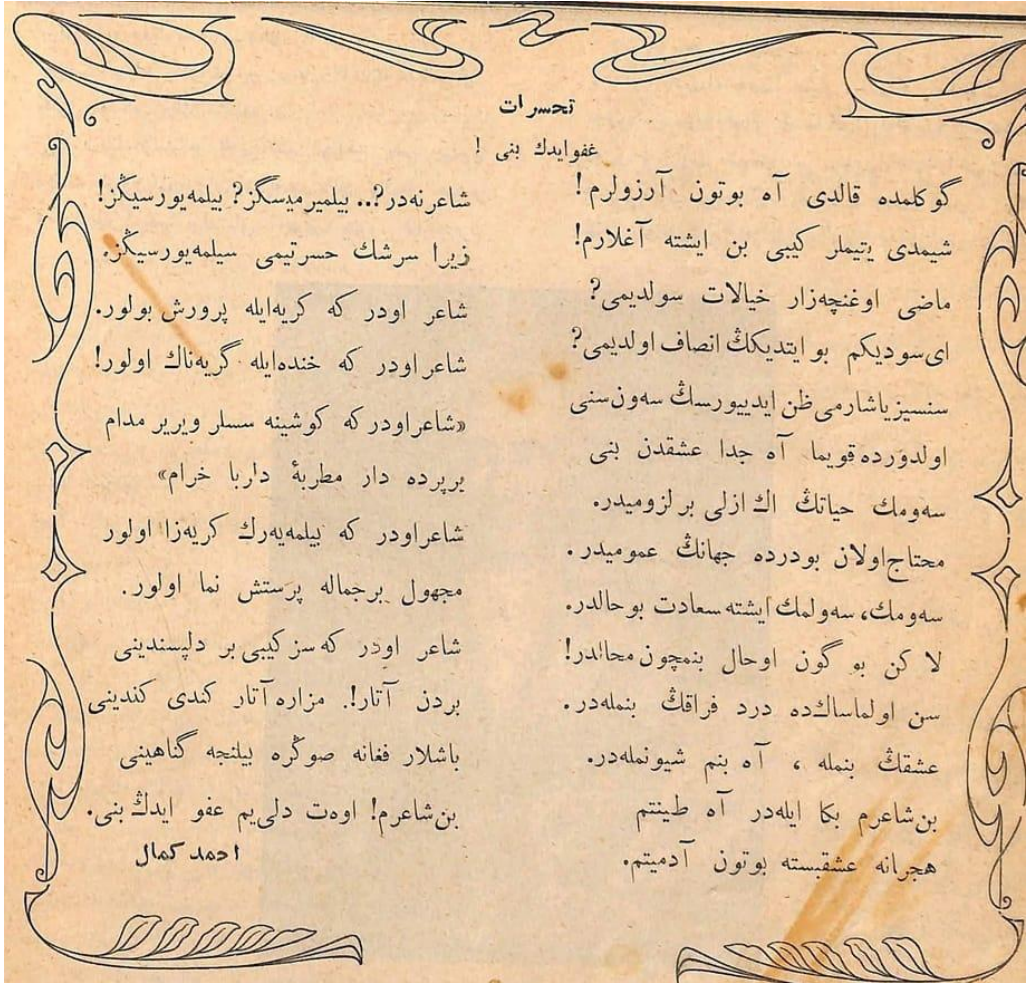 تحسرات
عفو ایدڭ بنى !
گوكلمده قالدى آه بوتون آرزولرم!
شیمدى یتیملر كیبى بن ایشته آغلارم!
ماضى اوغنچه‌زار خیالات سولدیمى?
اى‌سودیكم بو ایتدیكڭ انصاف اولدیمى?
سنسیزیاشارمى ظن ایدییورسڭ سه‌ون‌سنى
اولدورده قویما آه جدا عشقدن بنى
سه‌ومك حیاتڭ اڭ ازلى بر لزومیدر.
محتاج‌اولان بودرده جهانڭ عمومیدر.
سه‌ومك، سه‌ولمك‌ایشته‌سعادت بوحالدر.
لا كن بو گون اوحال بنمچون محالدر!
سن اولماساڭ‌ده درد فراقڭ بنمله‌در.
عشقڭ بنمله ، آه بنم شیونمله‌در.
بن‌شاعرم بكا ایله‌در آه طینتم
هجرانه عشقبسته بوتون آدمیتم.
شاعر نه‌در?.. بیلمیرمیسڭز? بیلمه‌یورسیڭز!
زیرا سرشك حسرتیمى سیلمه‌یورسیڭز.
شاعر اودر كه كریه‌ایله پرورش بولور.
شاعر اودر كه خنده‌ایله گریه‌ناك اولور!
«شاعراودر كه كوشینه سسلر ویریر مدام
برپرده دار مطربهٔ داربا خرام»
شاعراودر كه بیلمه‌یه‌رك كریه‌زا اولور
مجهول برجماله پرستش نما اولور.
شاعر اودر كه سز كیبى بر دلپسندینى
بردن آتار!. مزاره آتار كندى كندینى
باشلار فغانه صوڭره بیلنجه گناهینى
بن‌شاعرم! اوه‌ت دلى‌یم عفو ایدڭ بنى.
احمد كمال